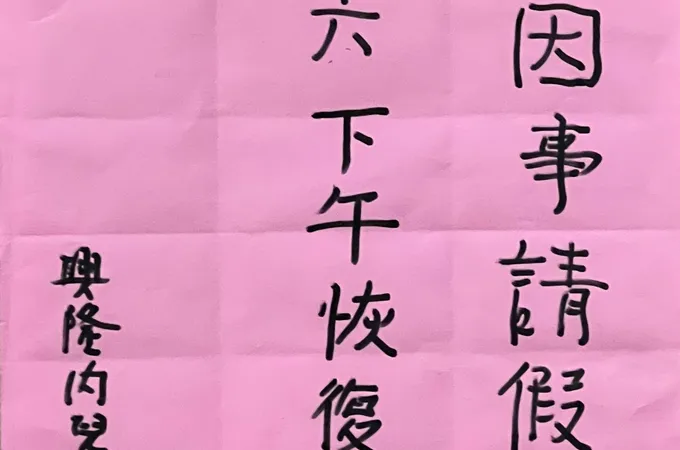 因事請假
六下午恢復
興隆內兒